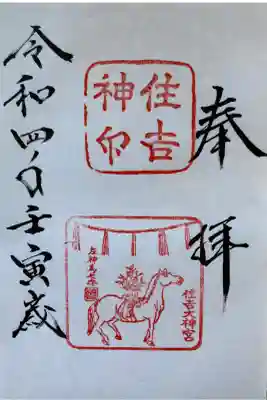 奉拝
住吉
神印
住吉大神宮
令和四年壬寅歳